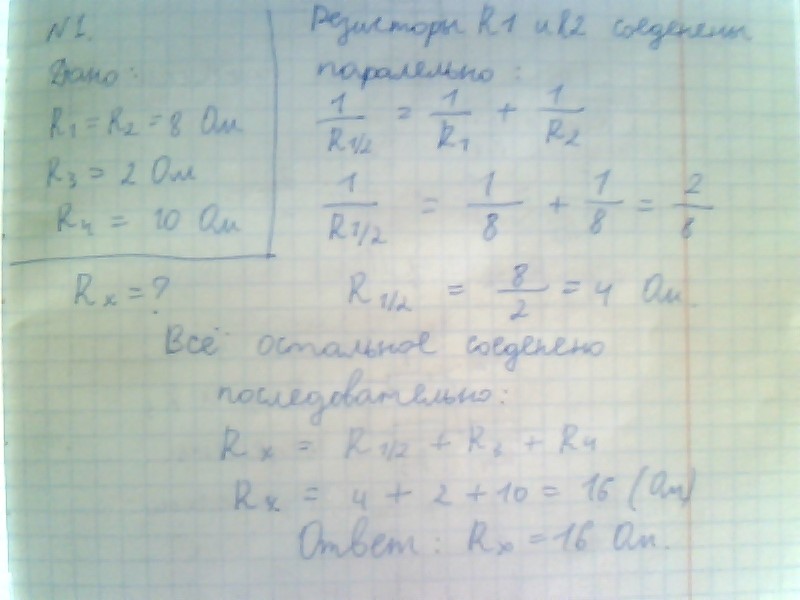 N1.
Дано:
R1 = R2 = 8 Ом
R3 = 2 Ом
R4 = 10 Ом
Rx = ?
Резисторы R1 и R2 соеденены
паралельно:
1/R1/2 = 1/R1 + 1/R2
1/R1/2 = 1/8 + 1/8 = 2/8
R1/2 = 8/2 = 4 Ом.
Всё остальное соеденено
последовательно:
Rx = R1/2 + R3 + R4
Rx = 4 + 2 + 10 = 16 (Ом)
Ответ: Rx = 16 Ом.